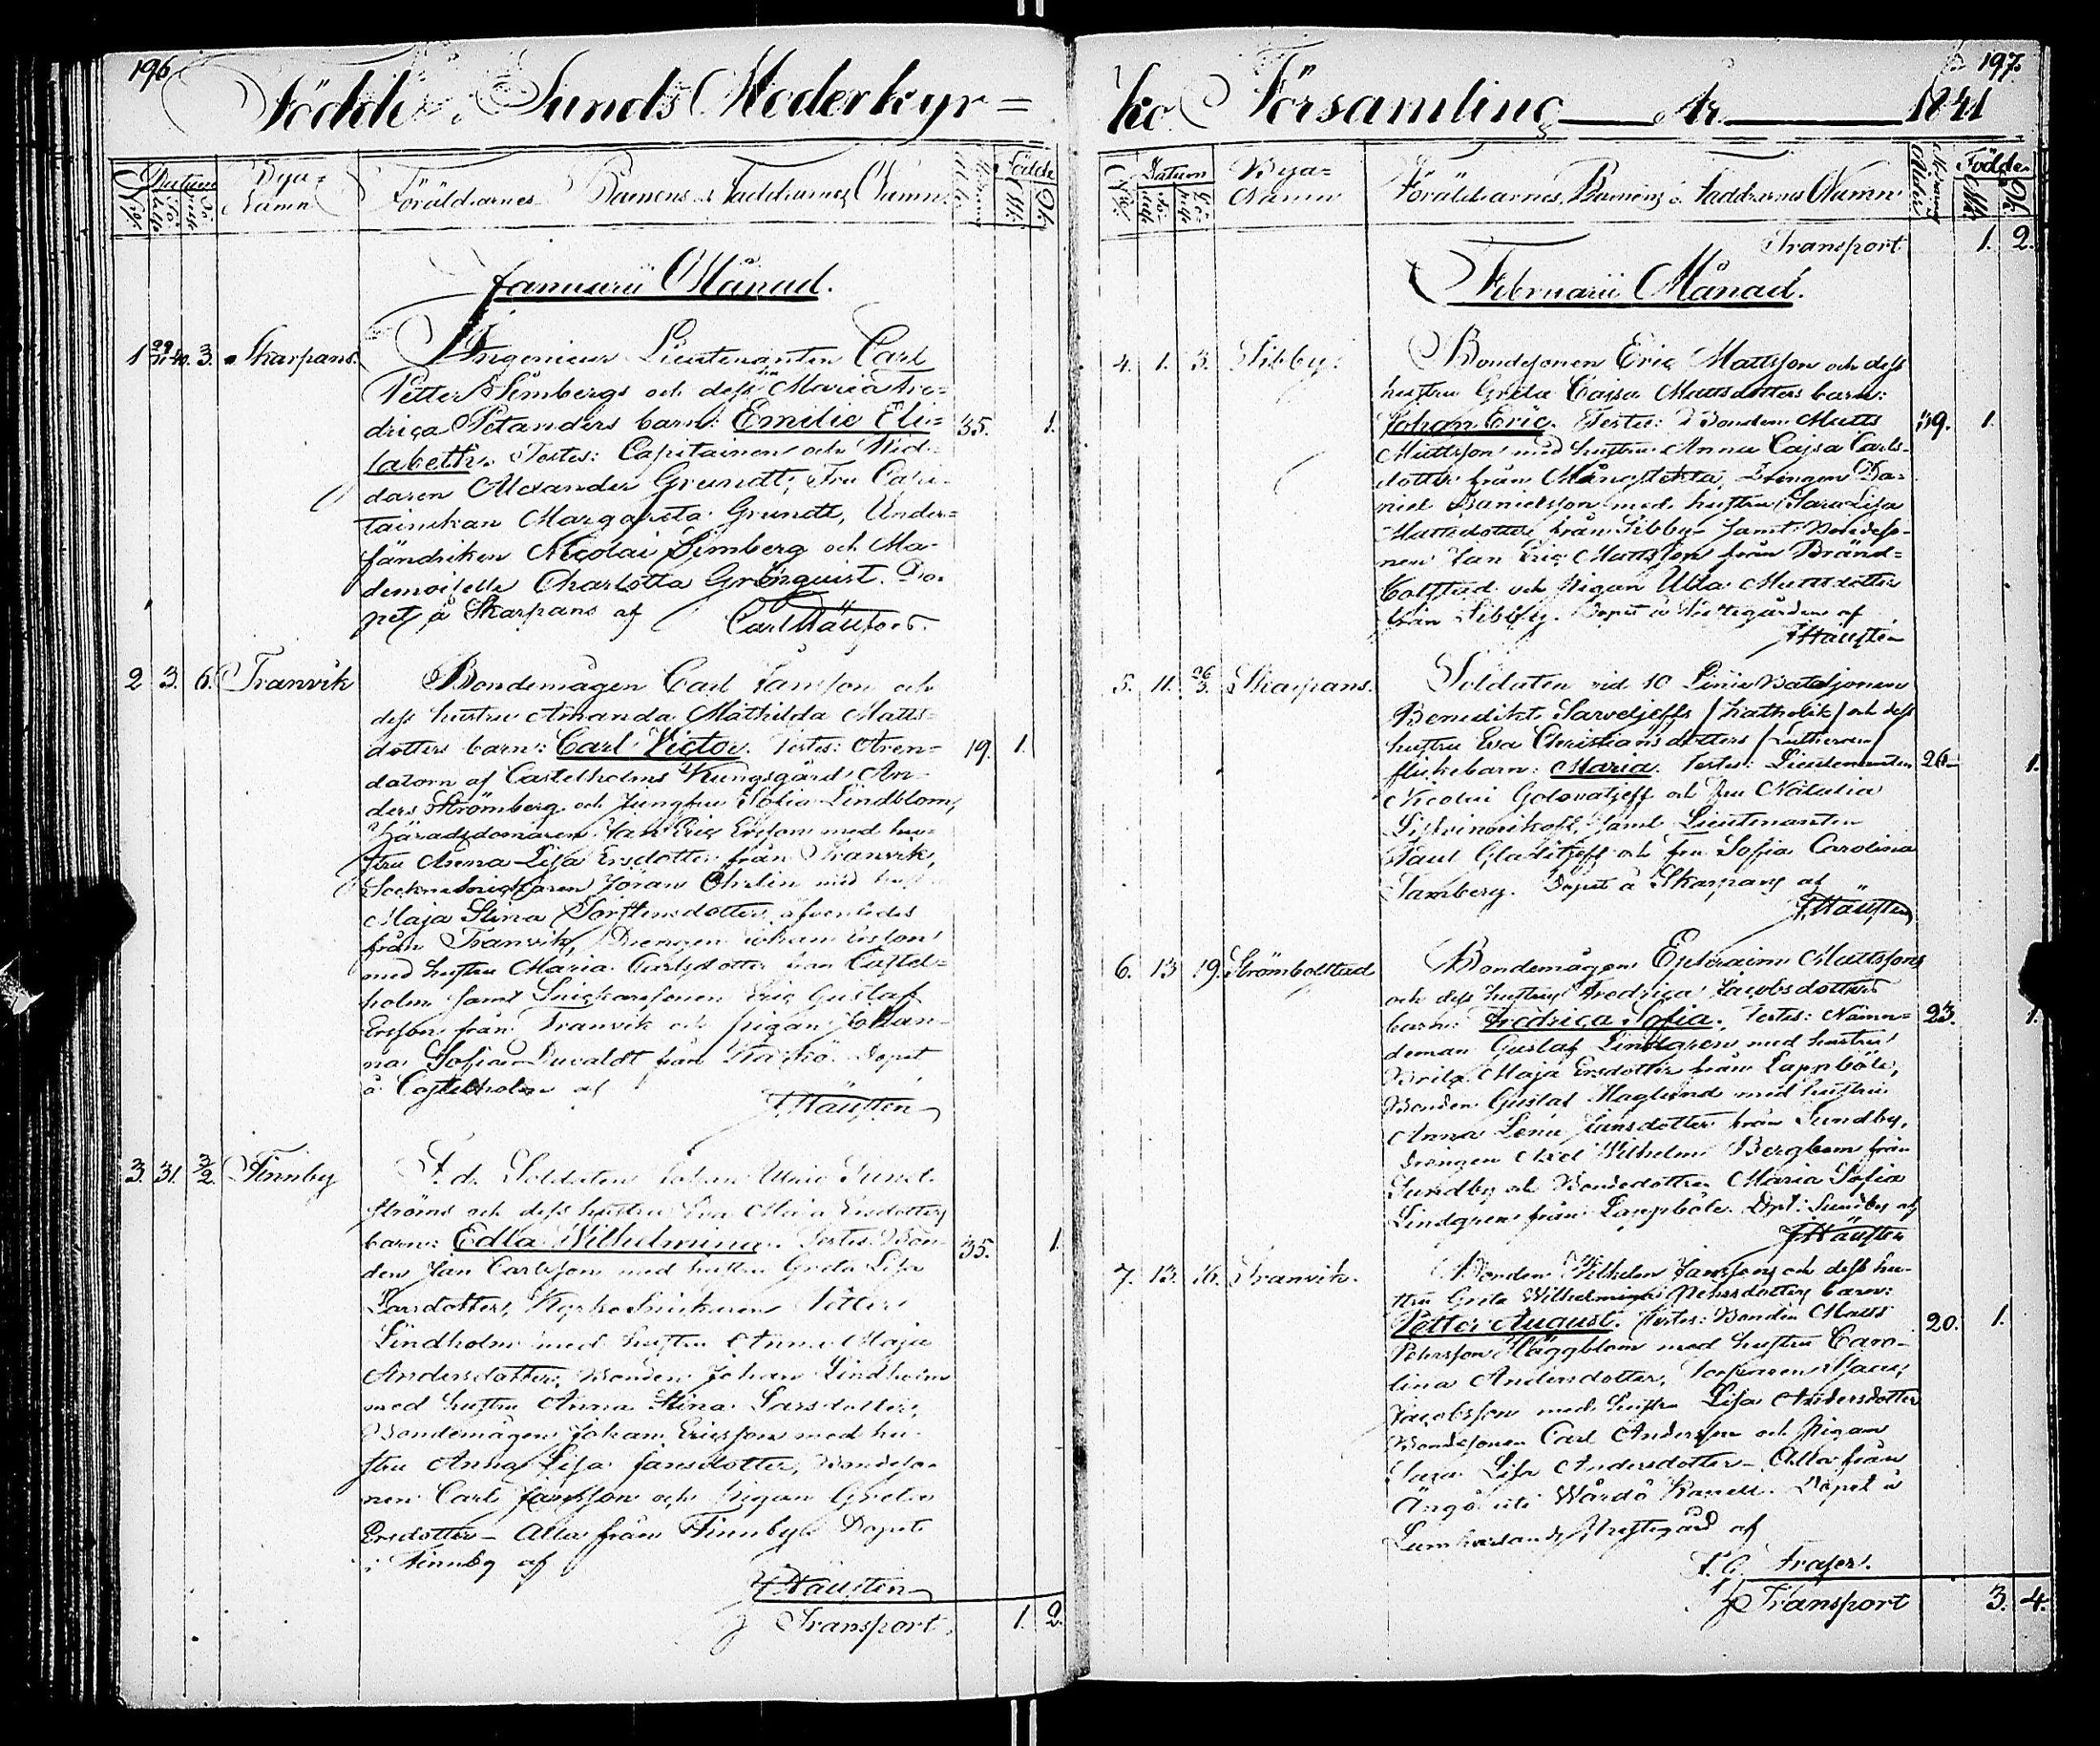 196
Födde i Sunds Moderkyr=
N:o Datum Födelse Döpelse
Bya=
Namn
Föräldrarnes Barnens o. Faddrarnes Namn
Födde
Mk. Qk.
Januarii Månad.
1 29/11 40. 3. Skarpans.
Ingenieur Lieutenanten Carl
Petter Simbergs och dess fru Maria Fre-
drica Petanders barn: Emilie Eli= 35. 1.
sabeth. Testes: Capitainen och Rid-
daren Alexander Grundt, Fru Capi-
tainskan Margareta Grundt, Under=
fändriken Nicolai Simberg och Ma-
demoiselle Charlotta Grönquist. Dö-
pet å Skarpans af
2 3. 6. Tranvik
Bondemågen Carl Jansson och
dess hustru Amanda Mathilda Matts=
dotters barn: Carl Victor. Testes: Aren= 19. 1.
datorn af Castelholms Kungsgård An-
ders Strömberg och Jungfru Sofia Lindblom,
Häradsdomaren Jan Eric Ersson med hu-
stru Anna Lisa Ersdotter från Tranvik,
Sockneskrädaren Jöran Öhrlin med hust
Maja Stina Torstensdotter äfvenledes
från Tranvik, Drengen Johan Ersson
med hustru Maria Carlsdotter från Castel=
holm samt Snickaresonen Eric Gustaf
Ersson från Tranvik och pigan Johan-
na Sofia Duvaldt från Döpet
å Castelholm af
J. Häusten
3. 31. 3/2. Finnby
F. d. Soldaten Johan Ulric Sund-
ströms och dess hustru Eva Maria Ersdotters
barn: Edla Wilhelmina. Testes: Bon= 35. 1.
den Jan Carlsson med hustru Greta Lisa
Larsdotter, Kyrko Snickaren Petter
Lindholm med hustru Anna Maja
Andersdotter, Bonden Johan Lindholm
med hustru Anna Stina Larsdotter,
Bondemågen Johan Ericsson med hu-
stru Anna Lisa Jansdotter, Bondeso-
nen Carl Jansson och Pigan Greta
Ersdotter – Alla från Finnby. Döpet
i Finnby af
J. Häusten
Transport 1. 2.
197.
ko Församling År 1841
N:o Datum
Bya=
Namn
Föräldrarnes, Barnens o. Faddrarnes Namn
Ålder
Födde
Mk. Qk.
Transport 1. 2.
Februarii Månad.
4. 1. 3. Sibby.
Bondesonen Eric Mattsson och dess
hustru Greta Cajsa Mattsdotters barn:
Johan Eric. Testes: Bonden Matts 39. 1.
Mattsson med hustru Anna Cajsa Carls-
dotter från Mångstekta, Drengen Da-
niel Danielsson med hustru Sara Lisa
Mattsdotter från Sibby samt Bondeso-
nen Jan Eric Mattsson från Bränd=
bolstad och Pigan Ulla Mattsdotter
från Sibby. Döpet å Prestegården af
J Häusten
5. 11. 26/3. Skarpans.
Soldaten vid 10 Linie Bataljonen
Benedikt Sarveljeffs /katholik/ och dess
hustru Eva Christiansdotters /Lutheran/
flickebarn: Maria. Testes: Lieutenanten 26. 1.
Nicolai Golovatjeff och Fru Natalia
samt Lieutenanten
Paul och fru Sofia Carolina
Samberg. Döpet å Skarpans af
J. Häusten
6. 13 19. Strömbolstad
Bondemågen Ephraim Mattssons
och dess hustrus Fredrica Jacobsdotters
barn: Fredrica Sofia. Testes: Nämn= 23. 1.
deman Gustaf Lindgren med hustru
Brita Maja Ersdotter från Lappböle,
Bonden Gustaf Haglund med hustru
Anna Lena Jansdotter från Sundby,
Drengen Axel Wilhelm Bergbom från
Sundby och Bondedottren Maria Sofia
Lindgren från Lappböle. Döpt i Sundby af
J. Häusten
7. 13. 16. Tranvik.
Bonden Wilhelm Janssons och dess hu-
stru Greta Wilhelmina Pehrsdotters barn:
Petter August. Testes: Bonden Matts 20. 1.
Pehrsson Häggblom med hustru Caro-
lina Andersdotter, Torparen Isaac
Jacobsson med hustru Lisa Andersdotter
Bondesonen Carl Andersson och Pigan
Lisa Andersdotter – Alla från
Ängö uti Wårdö Kapell. Döpet å
Lumparlands Prestegård af
Fraser.
Transport 3. 4.